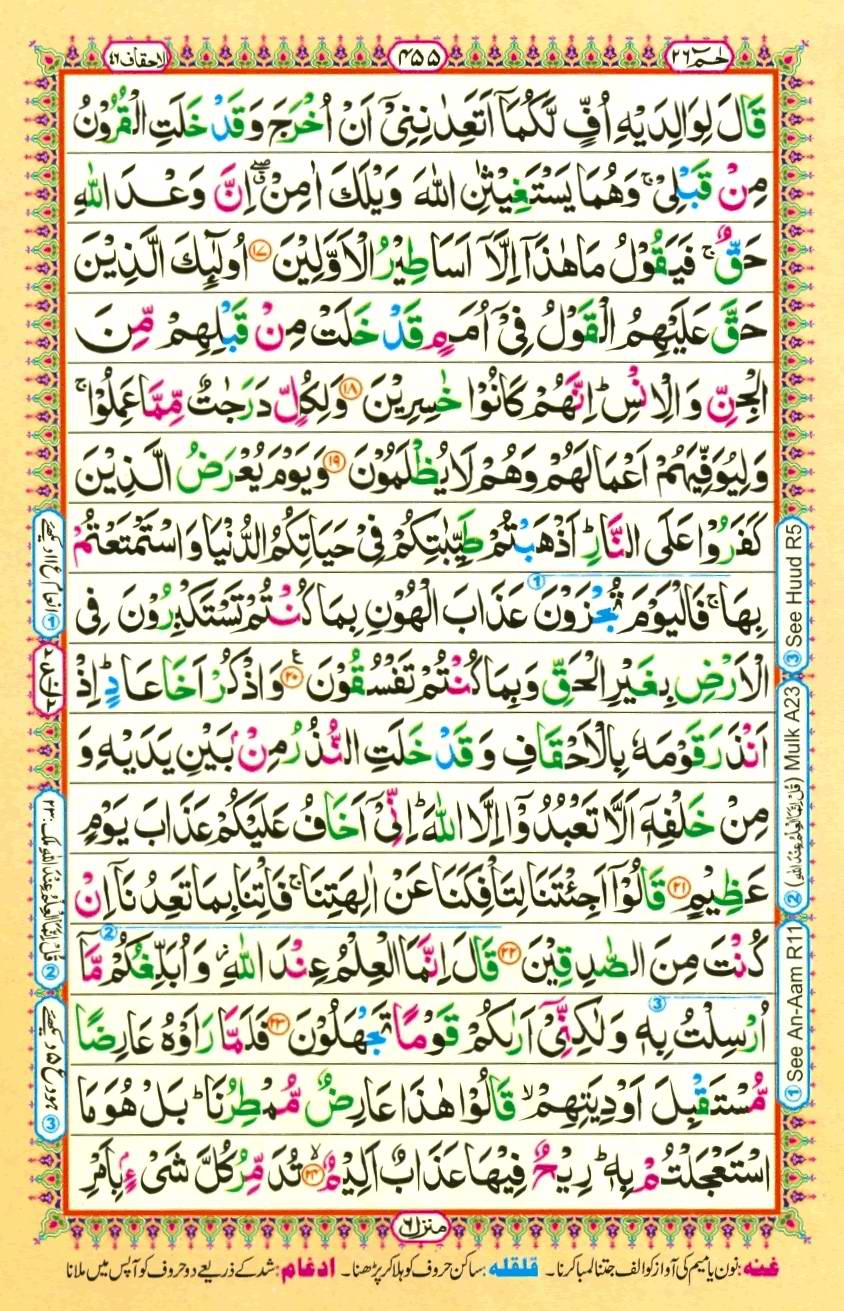 حٰمٓ ٢٦
٤٥٥
الاحقاف ٤٦
قَالَ لِوَالِدَيْهِ اُفٍّ لَّكُمَاۤ اَتَعِدٰنِنِيْۤ اَنْ اُخْرَجَ وَ قَدْ خَلَتِ الْقُرُوْنُ
مِنْ قَبْلِيْ ۚ وَهُمَا يَسْتَغِيْثٰنِ اللّٰهَ وَيْلَكَ اٰمِنْ ۖۗ اِنَّ وَعْدَ اللّٰهِ
حَقٌّ ۚ فَيَقُوْلُ مَا هٰذَاۤ اِلَّاۤ اَسَاطِيْرُ الْاَوَّلِيْنَ ﴿۱۷﴾ اُولٰٓئِكَ الَّذِيْنَ
حَقَّ عَلَيْهِمُ الْقَوْلُ فِيْۤ اُمَمٍ قَدْ خَلَتْ مِنْ قَبْلِهِمْ مِّنَ
الْجِنِّ وَ الْاِنْسِ ؕ اِنَّهُمْ كَانُوْا خٰسِرِيْنَ ﴿۱۸﴾ وَلِكُلٍّ دَرَجٰتٌ مِّمَّا عَمِلُوْا ۚ
وَلِيُوَفِّيَهُمْ اَعْمَالَهُمْ وَهُمْ لَا يُظْلَمُوْنَ ﴿۱۹﴾ وَيَوْمَ يُعْرَضُ الَّذِيْنَ
كَفَرُوْا عَلَى النَّارِ ؕ اَذْهَبْتُمْ طَيِّبٰتِكُمْ فِيْ حَيَاتِكُمُ الدُّنْيَا وَاسْتَمْتَعْتُمْ
بِهَا ۚ فَالْيَوْمَ تُجْزَوْنَ عَذَابَ الْهُوْنِ بِمَا كُنْتُمْ تَسْتَكْبِرُوْنَ فِي
الْاَرْضِ بِغَيْرِ الْحَقِّ وَبِمَا كُنْتُمْ تَفْسُقُوْنَ ﴿۲۰﴾ وَاذْكُرْ اَخَا عَادٍ ؕ اِذْ
اَنْذَرَ قَوْمَهٗ بِالْاَحْقَافِ وَ قَدْ خَلَتِ النُّذُرُ مِنْۢ بَيْنِ يَدَيْهِ وَ
مِنْ خَلْفِهٖۤ اَلَّا تَعْبُدُوْۤا اِلَّا اللّٰهَ ؕ اِنِّيْۤ اَخَافُ عَلَيْكُمْ عَذَابَ يَوْمٍ
عَظِيْمٍ ﴿۲۱﴾ قَالُوْۤا اَجِئْتَنَا لِتَاْفِكَنَا عَنْ اٰلِهَتِنَا ۚ فَاْتِنَا بِمَا تَعِدُنَاۤ اِنْ
كُنْتَ مِنَ الصّٰدِقِيْنَ ﴿۲۲﴾ قَالَ اِنَّمَا الْعِلْمُ عِنْدَ اللّٰهِ ؗ وَاُبَلِّغُكُمْ مَّاۤ
اُرْسِلْتُ بِهٖ وَلٰكِنِّيْۤ اَرٰىكُمْ قَوْمًا تَجْهَلُوْنَ ﴿۲۳﴾ فَلَمَّا رَاَوْهُ عَارِضًا
مُّسْتَقْبِلَ اَوْدِيَتِهِمْ ۙ قَالُوْا هٰذَا عَارِضٌ مُّمْطِرُنَا ؕ بَلْ هُوَ مَا
اسْتَعْجَلْتُمْ بِهٖ ؕ رِيْحٌ فِيْهَا عَذَابٌ اَلِيْمٌ ﴿۲۴﴾ ۙ تُدَمِّرُ كُلَّ شَيْءٍۭ بِاَمْرِ
① See An-Aam R11
② (قُلْ اِنَّمَا الْعِلْمُ عِنْدَ اللّٰهِ) Mulk A23
③ See Huud R5
① انعام ع ۱۱ دیکھیے
② قُلْ اِنَّمَا الْعِلْمُ عِنْدَ اللّٰهِ ملک:۲۳
③ ہود ع ۵ دیکھیے
منزل ٦
غنه: نون یا میم کی آواز کو الف جتنا لمبا کرنا۔ قلقله: ساکن حروف کو ہلا کر پڑھنا۔ ادغام: شد کے ذریعے دو حروف کو آپس میں ملانا